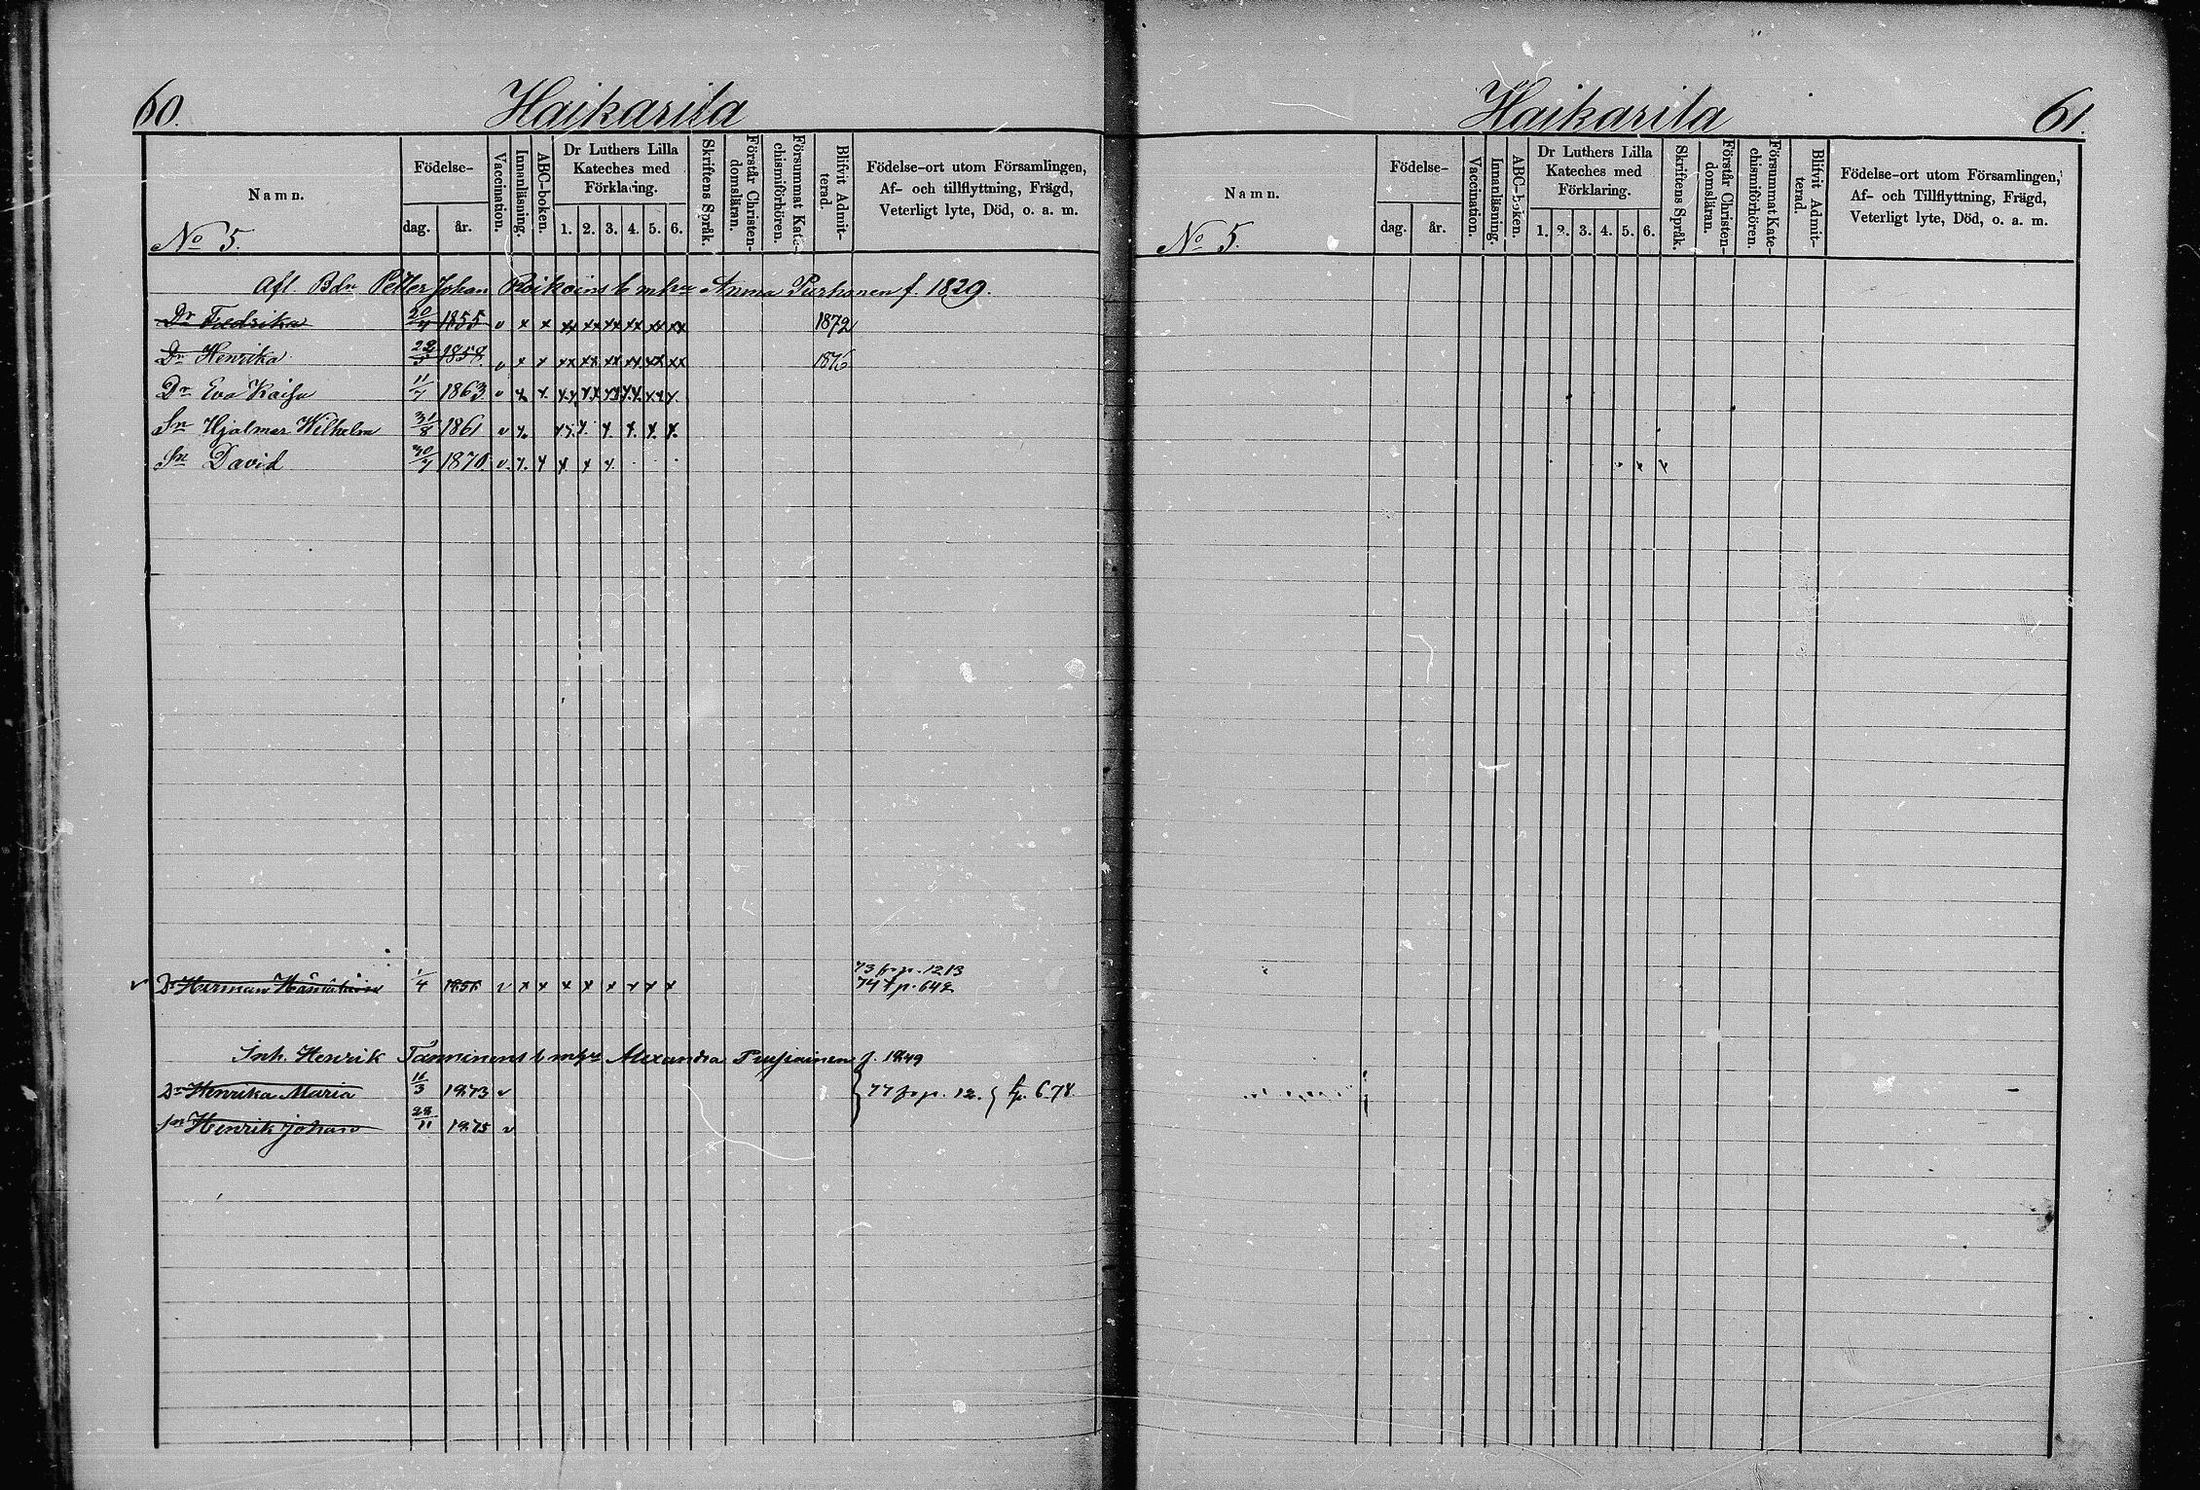 60. Haikarila
Namn.
Födelse-
dag. år.
Vaccination.
Innanläsning.
ABC-boken.
Dr Luthers Lilla Kateches med Förklaring.
1. 2. 3. 4. 5. 6.
Skriftens Språk.
Förstår Christendomsläran.
Försummat Katechismiförhören.
Blifvit Admitterad.
Födelse-ort utom Församlingen,
Af- och tillflyttning, Frägd,
Veterligt lyte, Död, o. a. m.
No 5.
Afl. Bdn Petter Johan b mhu Anna Purhonen f. 1829.
Dr Fredrika 20/4 1855 v x x xx xx xx xx xx xx 1872
Dr Henrika 1858 v x x xx xx xx xx xx xx 1876
Dr Eva Kaisa 11/7 1863 v x x xx xx xx xx xx xx
Sn Hjalmar Wilhelm 31/8 1861 v x. x x. x. x. x. x. x.
Sn David 1870 v. x. x x x x
Dr Herman 1/4 v x x x x x x x x
73 frp. 1213
74 tp. 642
Inh. Henrik Tanninens b mhu Alexandra f. 1849
Dr Henrika Maria 11/3 1873 v 77 frp. 12. tp. 678
Sn Henrik Johan 28/11 1875 v
Haikarila 61.
Namn.
Födelse-
dag. år.
Vaccination.
Innanläsning.
ABC-boken.
Dr Luthers Lilla Kateches med Förklaring.
1. 2. 3. 4. 5. 6.
Skriftens Språk.
Förstår Christendomsläran.
Försummat Katechismiförhören.
Blifvit Admitterad.
Födelse-ort utom Församlingen,
Af- och Tillflyttning, Frägd,
Veterligt lyte, Död, o. a. m.
No 5.